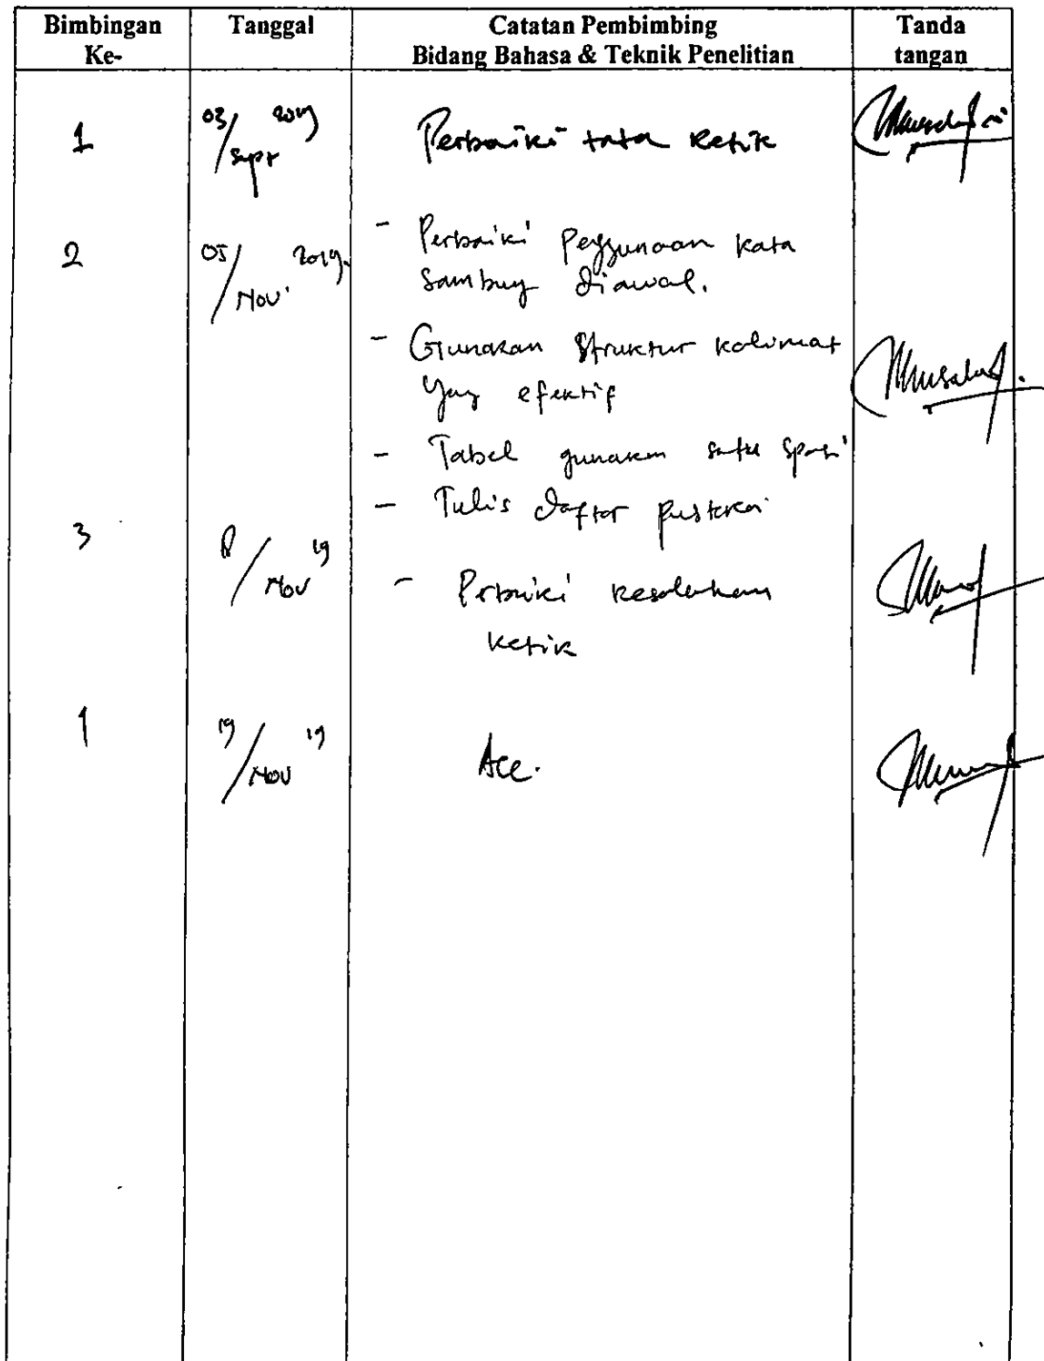 Bimbingan Ke- Tanggal Catatan Pembimbing Bidang Bahasa & Teknik Penelitian Tanda tangan
1 03/Sept 2019 Perbaiki tata ketik
2 05/Nov' 2019. - Perbaiki Penggunaan kata
sambung diawal.
- Gunakan Struktur kalimat
yang efektif
- Tabel gunakan satu spasi
- Tulis daftar pustaka
3 /Nov 19 - Perbaiki kesalahan
ketik
19/Nov 19 Acc.